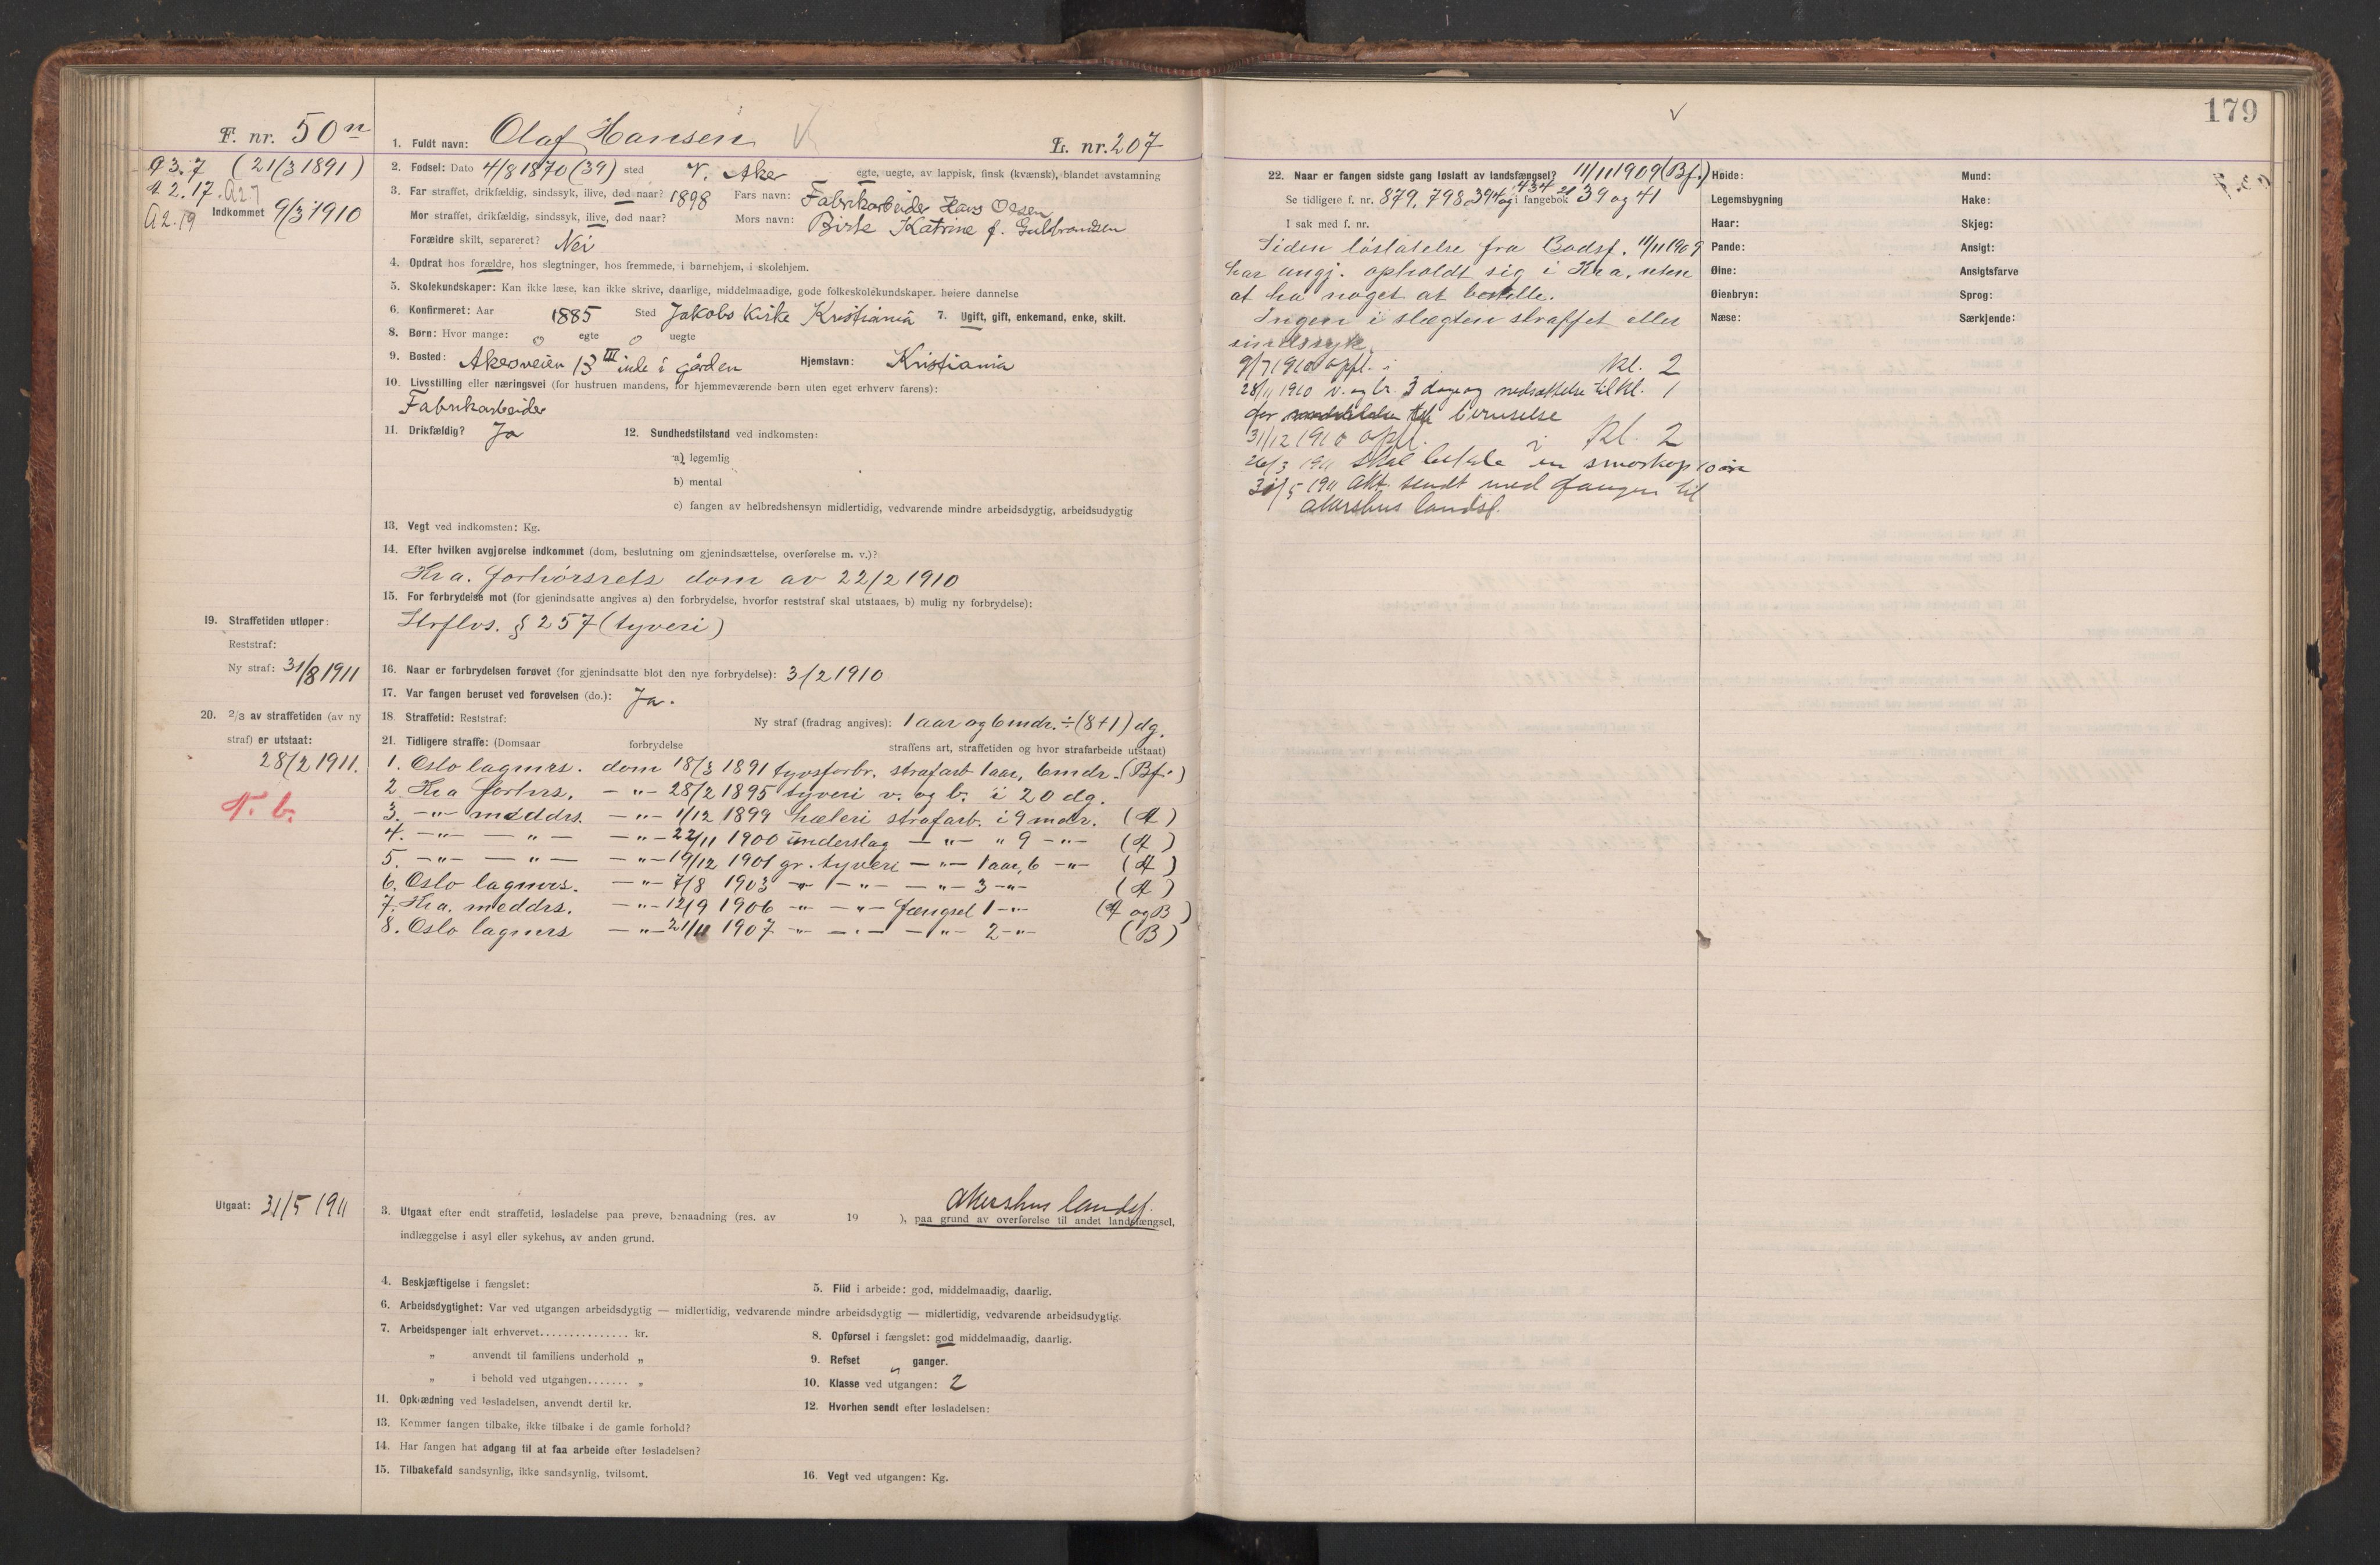 179
F. nr. 50ⁿ
a 3.7 (21/3 1891)
A 2.17. a2.7
a2.19
Indkommet 9/3 1910
1. Fuldt navn: Olaf Hansen V
L. nr. 207
2. Fødsel: Dato 4/8 1870 (39) sted V. Aker egte, uegte, av lappisk, finsk (kvænsk), blandet avstamning
3. Far straffet, drikfældig, sindssyk, ilive, død naar? 1898 Fars navn: Fabrikarbeider Hans Olsen
Mor straffet, drikfældig, sindssyk, ilive, død naar? Mors navn: Birte Katrine f. Gulbrandsen
Forældre skilt, separeret? Nei
4. Opdrat hos forældre, hos slegtninger, hos fremmede, i barnehjem, i skolehjem.
5. Skolekundskaper: Kan ikke læse, kan ikke skrive, daarlige, middelmaadige, gode folkeskolekundskaper. høiere dannelse
6. Konfirmeret: Aar 1885 Sted Jakobs Kirke Kristiania 7. Ugift, gift, enkemand, enke, skilt.
8. Børn: Hvor mange: 0 egte 0 uegte
9. Bosted: Akersveien 13 III inde i gården Hjemstavn: Kristiania
10. Livsstilling eller næringsvei (for hustruen mandens, for hjemmeværende børn uten eget erhverv farens):
Fabrikarbeider
11. Drikfældig? Ja 12. Sundhedstilstand ved indkomsten:
a) legemlig
b) mental
c) fangen av helbredshensyn midlertidig, vedvarende mindre arbeidsdygtig, arbeidsudygtig
13. Vegt ved indkomsten: Kg.
14. Efter hvilken avgjørelse indkommet (dom, beslutning om gjenindsættelse, overførelse m. v.)?
Kra. forhørsrets dom av 22/2 1910
15. For forbrydelse mot (for gjenindsatte angives a) den forbrydelse, hvorfor reststraf skal utstaaes, b) mulig ny forbrydelse):
Strflvs. § 257 (tyveri)
19. Straffetiden utløper:
Reststraf:
Ny straf: 31/8 1911
16. Naar er forbrydelsen forøvet (for gjenindsatte blot den nye forbrydelse): 3/2 1910
17. Var fangen beruset ved forøvelsen (do.): Ja.
18. Straffetid: Reststraf: Ny straf (fradrag angives): 1 aar og 6 mdr. ÷ (8+1) dg.
20. 2/3 av straffetiden (av ny
straf) er utstaat:
28/2 1911.
A. b.
21. Tidligere straffe: (Domsaar forbrydelse straffens art, straffetiden og hvor strafarbeide utstaat)
1. Oslo lagmrs. dom 18/3 1891 tyvsforbr. strafarb 1 aar, 6 mdr. (Bf.)
2 Kra forhrs. — " — 28/2 1895 tyveri v. og b. i 20 dg.
3. — " — meddrs. — " — 1/12 1899 hæleri strafarb. i 9 mdr. (A)
4. — " — — " — — " — 22/11 1900 underslag — " — " 9 — " — (A)
5. — " — — " — — " — 19/12 1901 gr. tyveri — " — 1 aar, 6 — " — (A)
6. Oslo lagmrs. — " — 7/8 1903 — " — — " — — " — 3 — " — (A)
7. Kra. meddrs. — " — 12/9 1906 — " — — " — fængsel 1 — " — (A og B)
8. Oslo lagmrs — " — 21/11 1907 — " — — " — — " — 2 — " — (B)
Utgaat: 31/5 1911
Akershus landsf.
3. Utgaat efter endt straffetid, løsladelse paa prøve, benaadning (res. av 19 ), paa grund av overførelse til andet landsfængsel,
indlæggelse i asyl eller sykehus, av anden grund.
4. Beskjæftigelse i fængslet: 5. Flid i arbeide: god, middelmaadig, daarlig.
6. Arbeidsdygtighet: Var ved utgangen arbeidsdygtig — midlertidig, vedvarende mindre arbeidsdygtig — midlertidig, vedvarende arbeidsudygtig.
7. Arbeidspenger ialt erhvervet............... kr. 8. Opførsel i fængslet: god middelmaadig, daarlig.
" anvendt til familiens underhold " 9. Refset " ganger.
" i behold ved utgangen....... " 10. Klasse ved utgangen: 2
11. Opklædning ved løsladelsen, anvendt dertil kr. 12. Hvorhen sendt efter løsladelsen:
13. Kommer fangen tilbake, ikke tilbake i de gamle forhold?
14. Har fangen hat adgang til at faa arbeide efter løsladelsen?
15. Tilbakefald sandsynlig, ikke sandsynlig, tvilsomt. 16. Vegt ved utgangen: Kg.
22. Naar er fangen sidste gang løslatt av landsfængsel? 11/11 1909 (Bf.)
Se tidligere f. nr. 879, 798, 394 og 434 i fangebok 21 39 og 41
I sak med f. nr.
Siden løslatelse fra Bodsf. 11/11 1909
har angj. opholdt sig i Kra. uten
at ha noget at bestille.
Ingen i slegten straffet eller
sindssyk.
9/7 1910 opfl. i kl. 2
28/11 1910 v. og br. 3 dage og nedsættelse til kl. 1
for beruselse
31/12 1910 opfl. i kl. 2
26/3 1911 skal betale en smørkop 10 øre
31/5 1911 Akt. sendt med fangen til
Akershus landsf.
Høide: Mund:
Legemsbygning Hake:
Haar: Skjeg:
Pande: Ansigt:
Øine: Ansigtsfarve
Øienbryn: Sprog:
Næse: Særkjende: